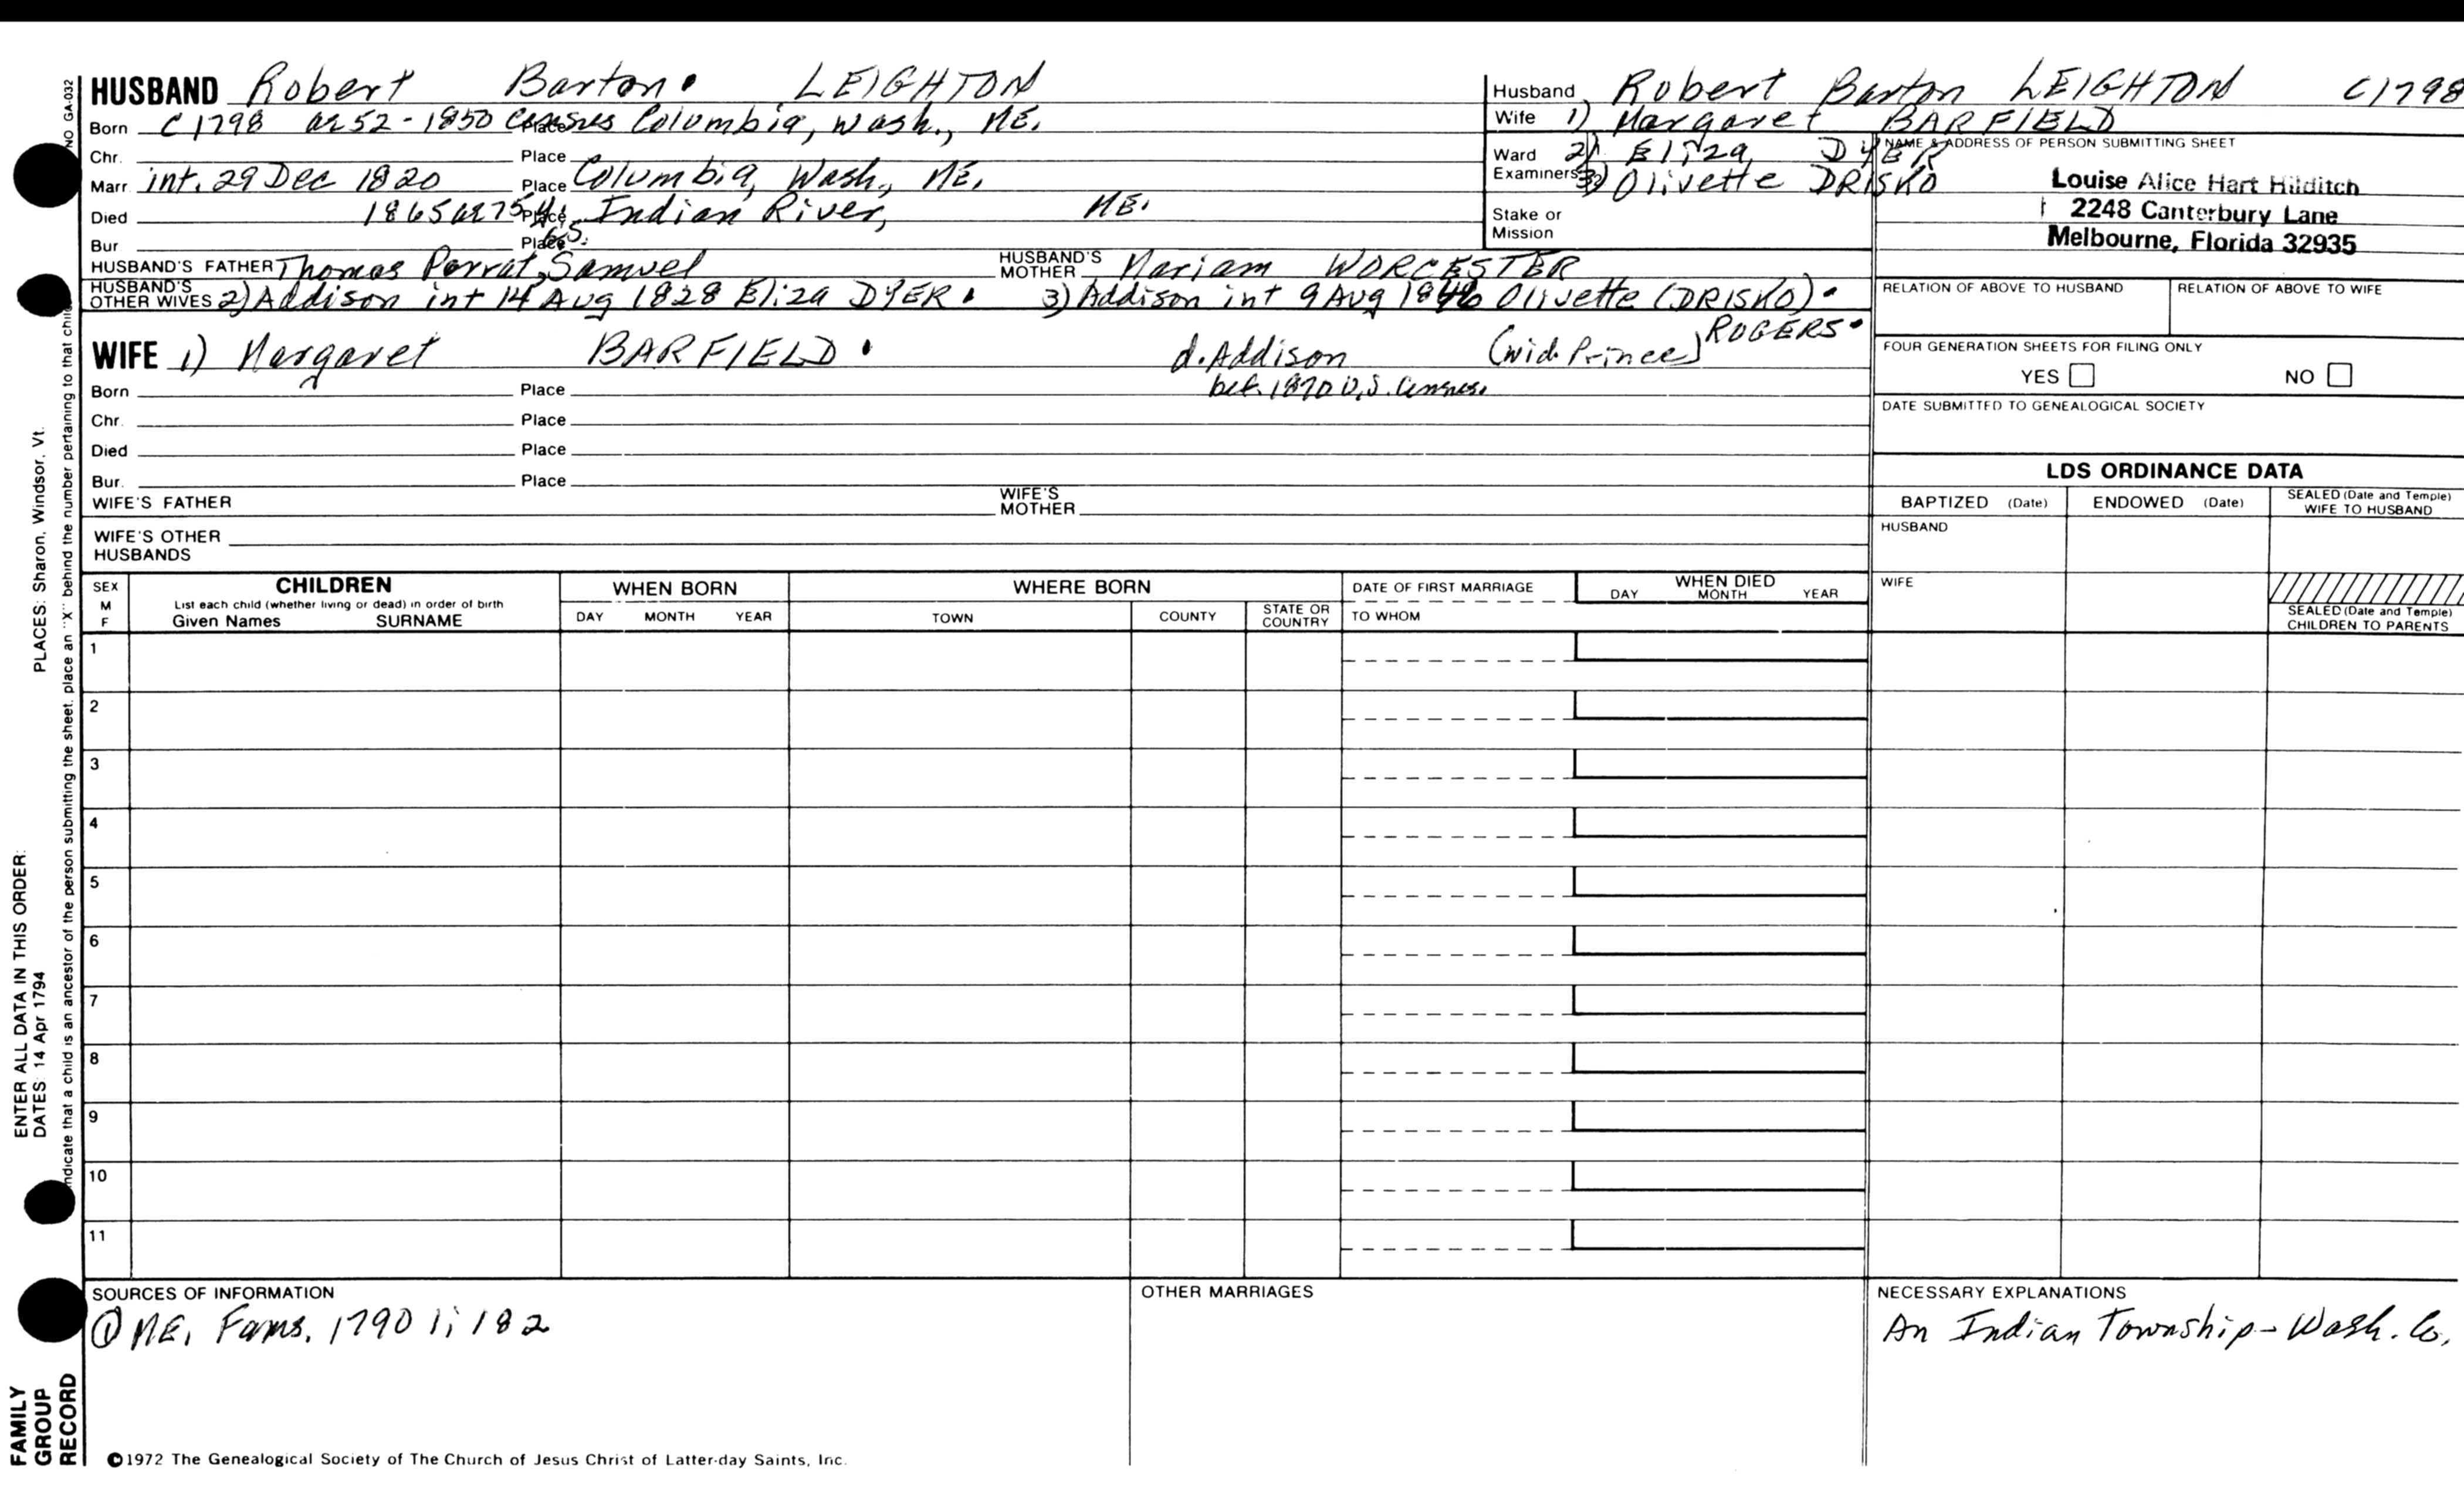 HUSBAND Robert Barton. LEIGHTON
Born C 1798 ae 52 - 1850 Census Place Columbia, Wash., ME.
Chr. Place
Marr. int. 29 Dec 1820 Place Columbia, Wash., ME.
Died 1865 ae 75 y. Place Indian River, ME.
Bur Place G.S.
HUSBAND'S FATHER Thomas Parrat, Samuel HUSBAND'S MOTHER Mariam WORCESTER
HUSBAND'S OTHER WIVES 2) Addison int 14 Aug 1828 Eliza DYER. 3) Addison int 9 Aug 1846 Olivette (DRISKO).
ROGERS.
WIFE 1) Margaret BARFIELD. d. Addison (wid. Prince)
bef. 1870 U.S. Census.
Born Place
Chr. Place
Died Place
Bur. Place
WIFE'S FATHER WIFE'S MOTHER
WIFE'S OTHER HUSBANDS
Husband Robert Barton LEIGHTON C1798
Wife 1) Margaret BARFIELD
Ward 2) Eliza DYER
Examiners: 3) Olivette DRISKO
Stake or Mission
NAME & ADDRESS OF PERSON SUBMITTING SHEET
Louise Alice Hart Hilditch
2248 Canterbury Lane
Melbourne, Florida 32935
RELATION OF ABOVE TO HUSBAND RELATION OF ABOVE TO WIFE
FOUR GENERATION SHEETS FOR FILING ONLY
YES NO
DATE SUBMITTED TO GENEALOGICAL SOCIETY
LDS ORDINANCE DATA
BAPTIZED (Date) ENDOWED (Date) SEALED (Date and Temple) WIFE TO HUSBAND
HUSBAND
WIFE
SEALED (Date and Temple) CHILDREN TO PARENTS
SEX M F
CHILDREN
List each child (whether living or dead) in order of birth
Given Names SURNAME
WHEN BORN
DAY MONTH YEAR
WHERE BORN
TOWN COUNTY STATE OR COUNTRY
DATE OF FIRST MARRIAGE
TO WHOM
WHEN DIED
DAY MONTH YEAR
1
2
3
4
5
6
7
8
9
10
11
SOURCES OF INFORMATION
① ME. Fams. 1790 1; 182
OTHER MARRIAGES
NECESSARY EXPLANATIONS
An Indian Township - Wash. Co.
©1972 The Genealogical Society of The Church of Jesus Christ of Latter-day Saints, Inc.
FAMILY
GROUP
RECORD
ENTER ALL DATA IN THIS ORDER:
DATES: 14 Apr 1794 PLACES: Sharon, Windsor, Vt.
indicate that a child is an ancestor of the person submitting the sheet, place an "X" behind the number pertaining to that child
NO GA-032